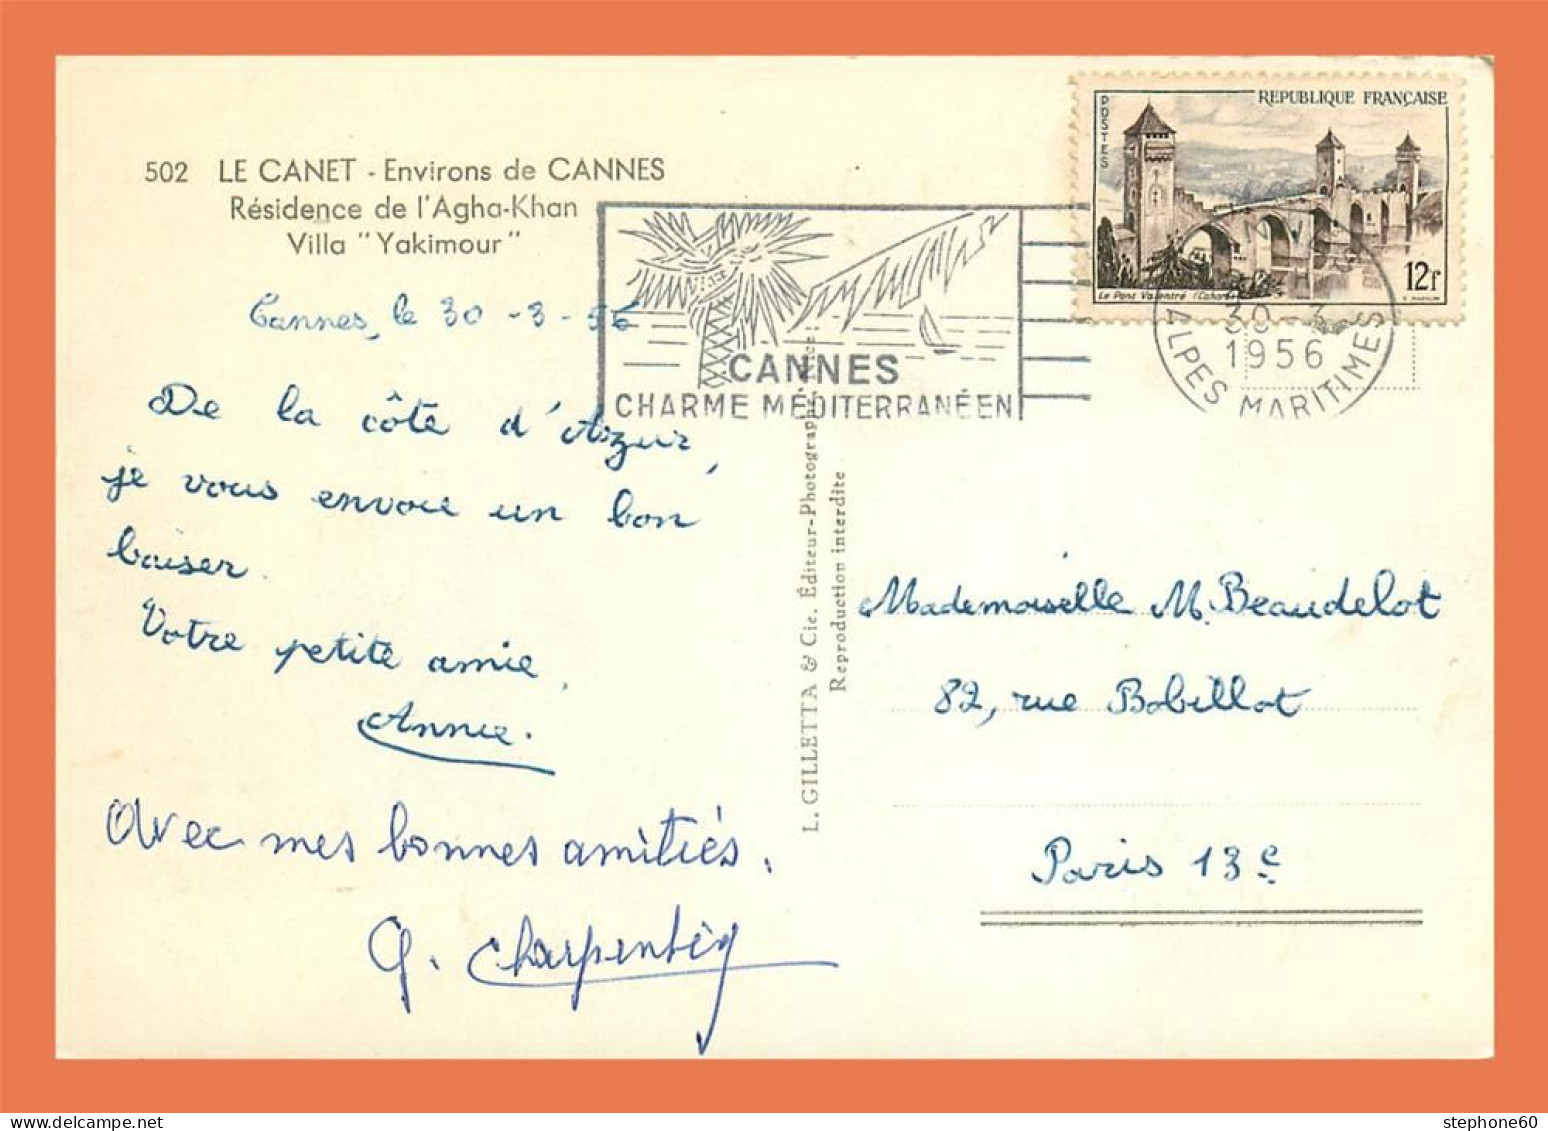 502 LE CANET - Environs de CANNES
Résidence de l'Agha-Khan
Villa "Yakimour"
Cannes, le 30-3-56
De la côte d'Azur,
je vous envoie un bon
baiser.
Votre petite amie,
Annie.
Avec mes bonnes amitiés.
Charpentier
CANNES
CHARME MÉDITERRANÉEN
REPUBLIQUE FRANÇAISE
POSTES
12f
Le Pont Valentré (Cahors)
30-3
1956
ALPES MARITIMES
L. GILLETTA & Cie. Éditeur-Photographe
Reproduction interdite
Mademoiselle M. Beaudelot
82, rue Bobillot
Paris 13e
stephone60